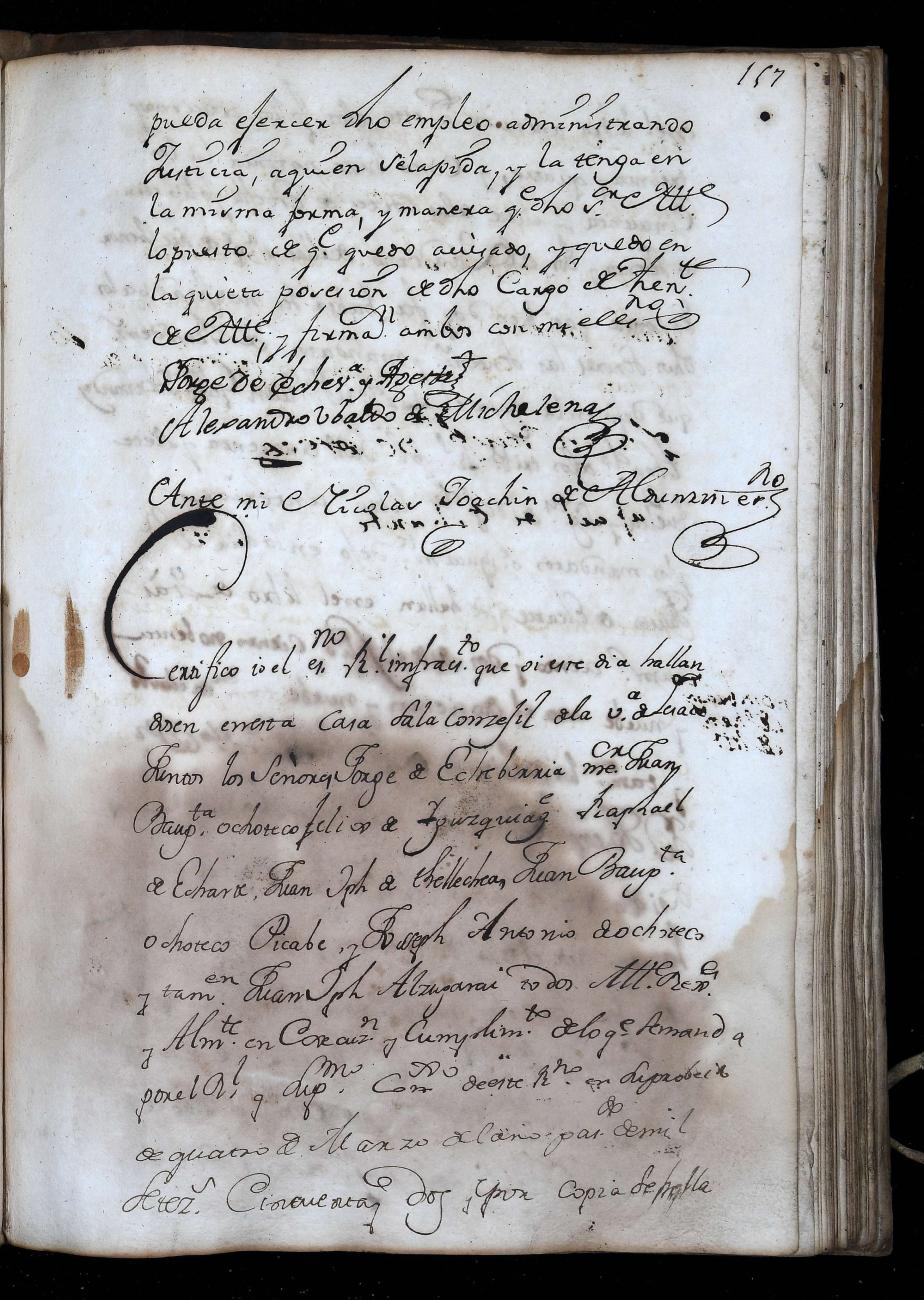 157
pueda ejercer dho empleo administrando
Justicia, a quien sela pida, y la tenga en
la misma forma, y manera q.e dho s.or Alll.e
lo presto de q.e quedo avisado, y quedo en
la quieta posesion de dho Cargo de Then.te
de Alll.e, y firma.n ambos con mi el es.no
Jorge de Echev.a y
Alexandro Vbaldo de Michelena
Ante mi Nicolas Joachin de es.no
Certifico io el es.no R.l infraes.to que oi este dia hallan
dosen en esta Casa sala Conzejil de la v.a de
Juntos los Señores Jorge de Echeberria Juan
Baup.ta ochoteco felis de Raphael
de Echarte, Juan Jph de thellechea, Juan Baup.ta
ochoteco Picabe, y Joseph Antonio de ochoteco
y tam.en Juan Jph Alzugarai todos Alll.e Rex.e
y Alm.te en y Cumplim.to de lo q.e se manda
por el R.l y Sup.mo Con.o de este R.no en su
de quatro de Marzo del año pas.do de mil
setez.s Cinquenta y Dos y por copia se halla